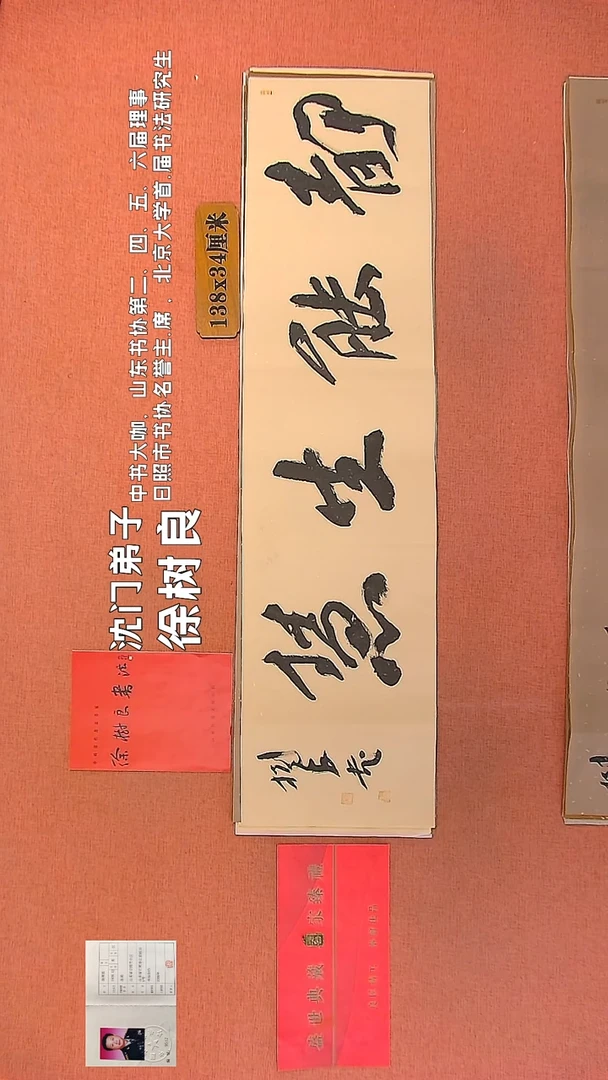 沈门弟子
徐树良
中书大咖、山东书协第二、四、五、六届理事
日照市书协名誉主席、北京大学首届书法研究生
138x34厘米
静能生慧
树良
徐树良书法
盛世典藏